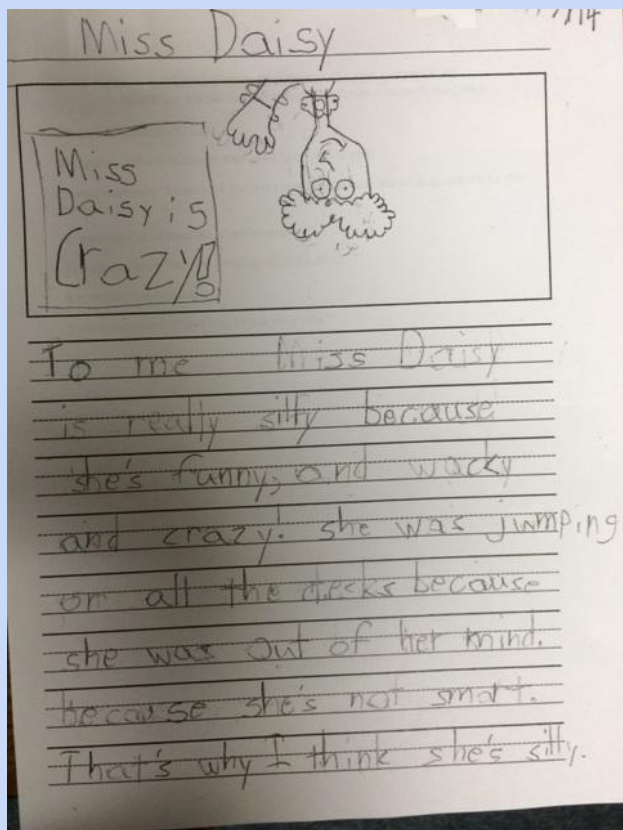 Miss Daisy
Miss
Daisy is
Crazy!
To me Miss Daisy
is really silly because
she's funny, and wacky
and crazy! she was jumping
on all the desks because
she was out of her mind.
because she's not smart.
That's why I think she's silly.